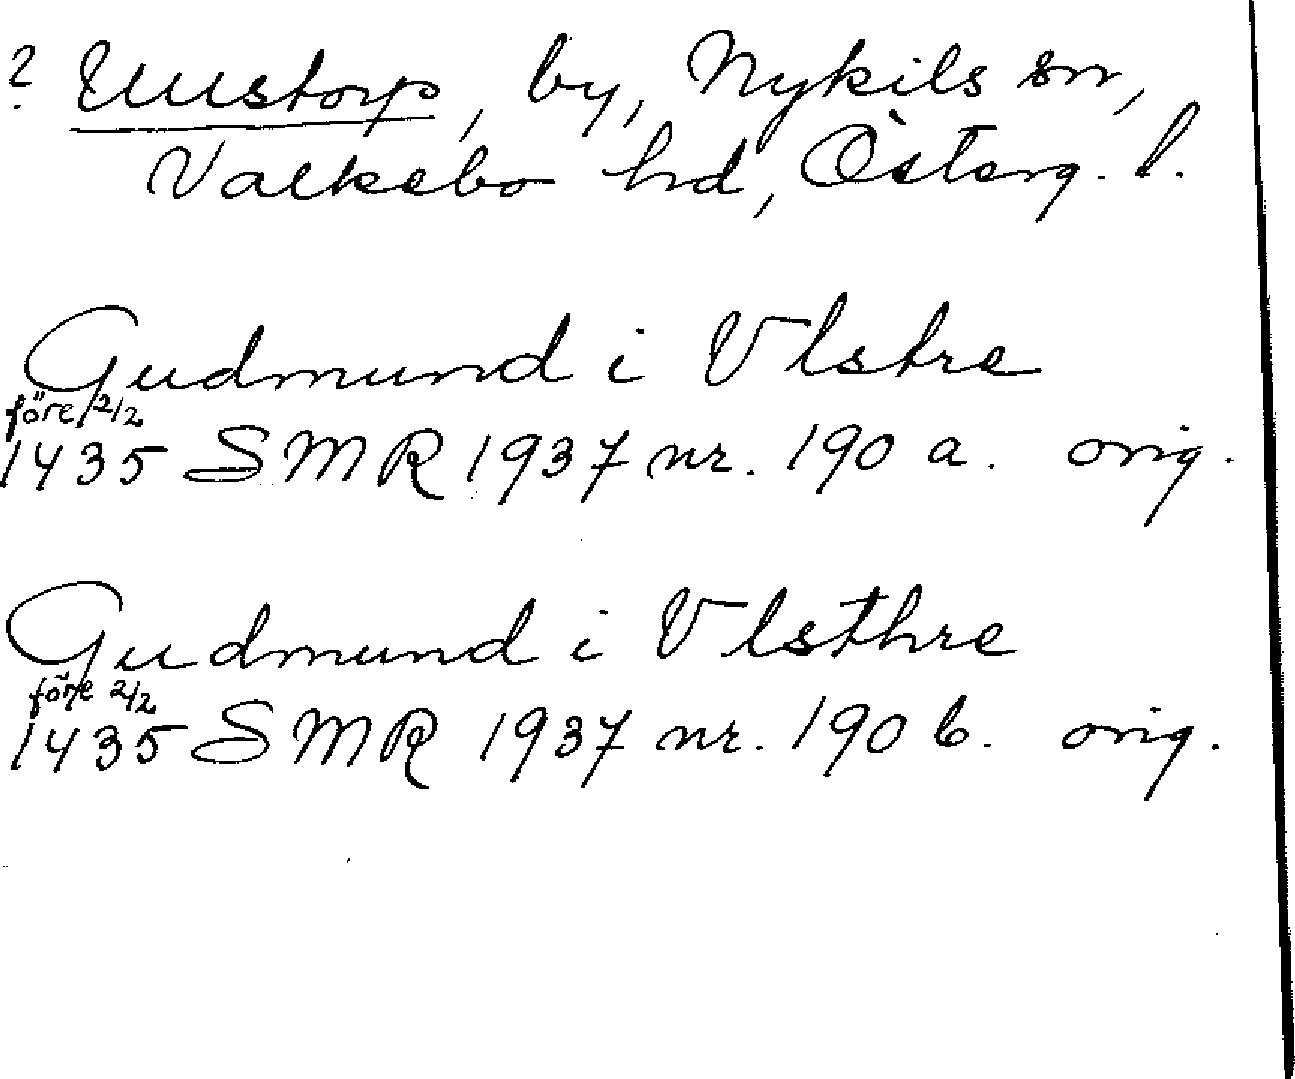 ? , by, Nykils sn,
Valkebo hd, Österg. l.
Gudmund i Vlstre
före 2/2
1435 SMR 1937 nr. 190 a. orig.
Gudmund i Vlsthre
före 2/2
1435 SMR 1937 nr. 190 b. orig.